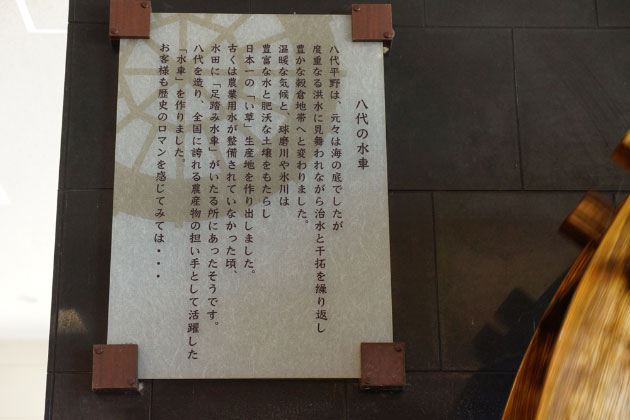 八代の水車
八代平野は、元々は海の底でしたが
度重なる洪水に見舞われながら治水と干拓を繰り返し
豊かな穀倉地帯へと変わりました。
温暖な気候と、球磨川や氷川は
豊富な水と肥沃な土壌をもたらし
日本一の「い草」生産地を作り出しました。
古くは農業用水が整備されていなかった頃、
水田に「足踏み水車」がいたる所にあったそうです。
八代を造り、全国に誇れる農産物の担い手として活躍した
「水車」を作りました。
お客様も歴史のロマンを感じてみては・・・